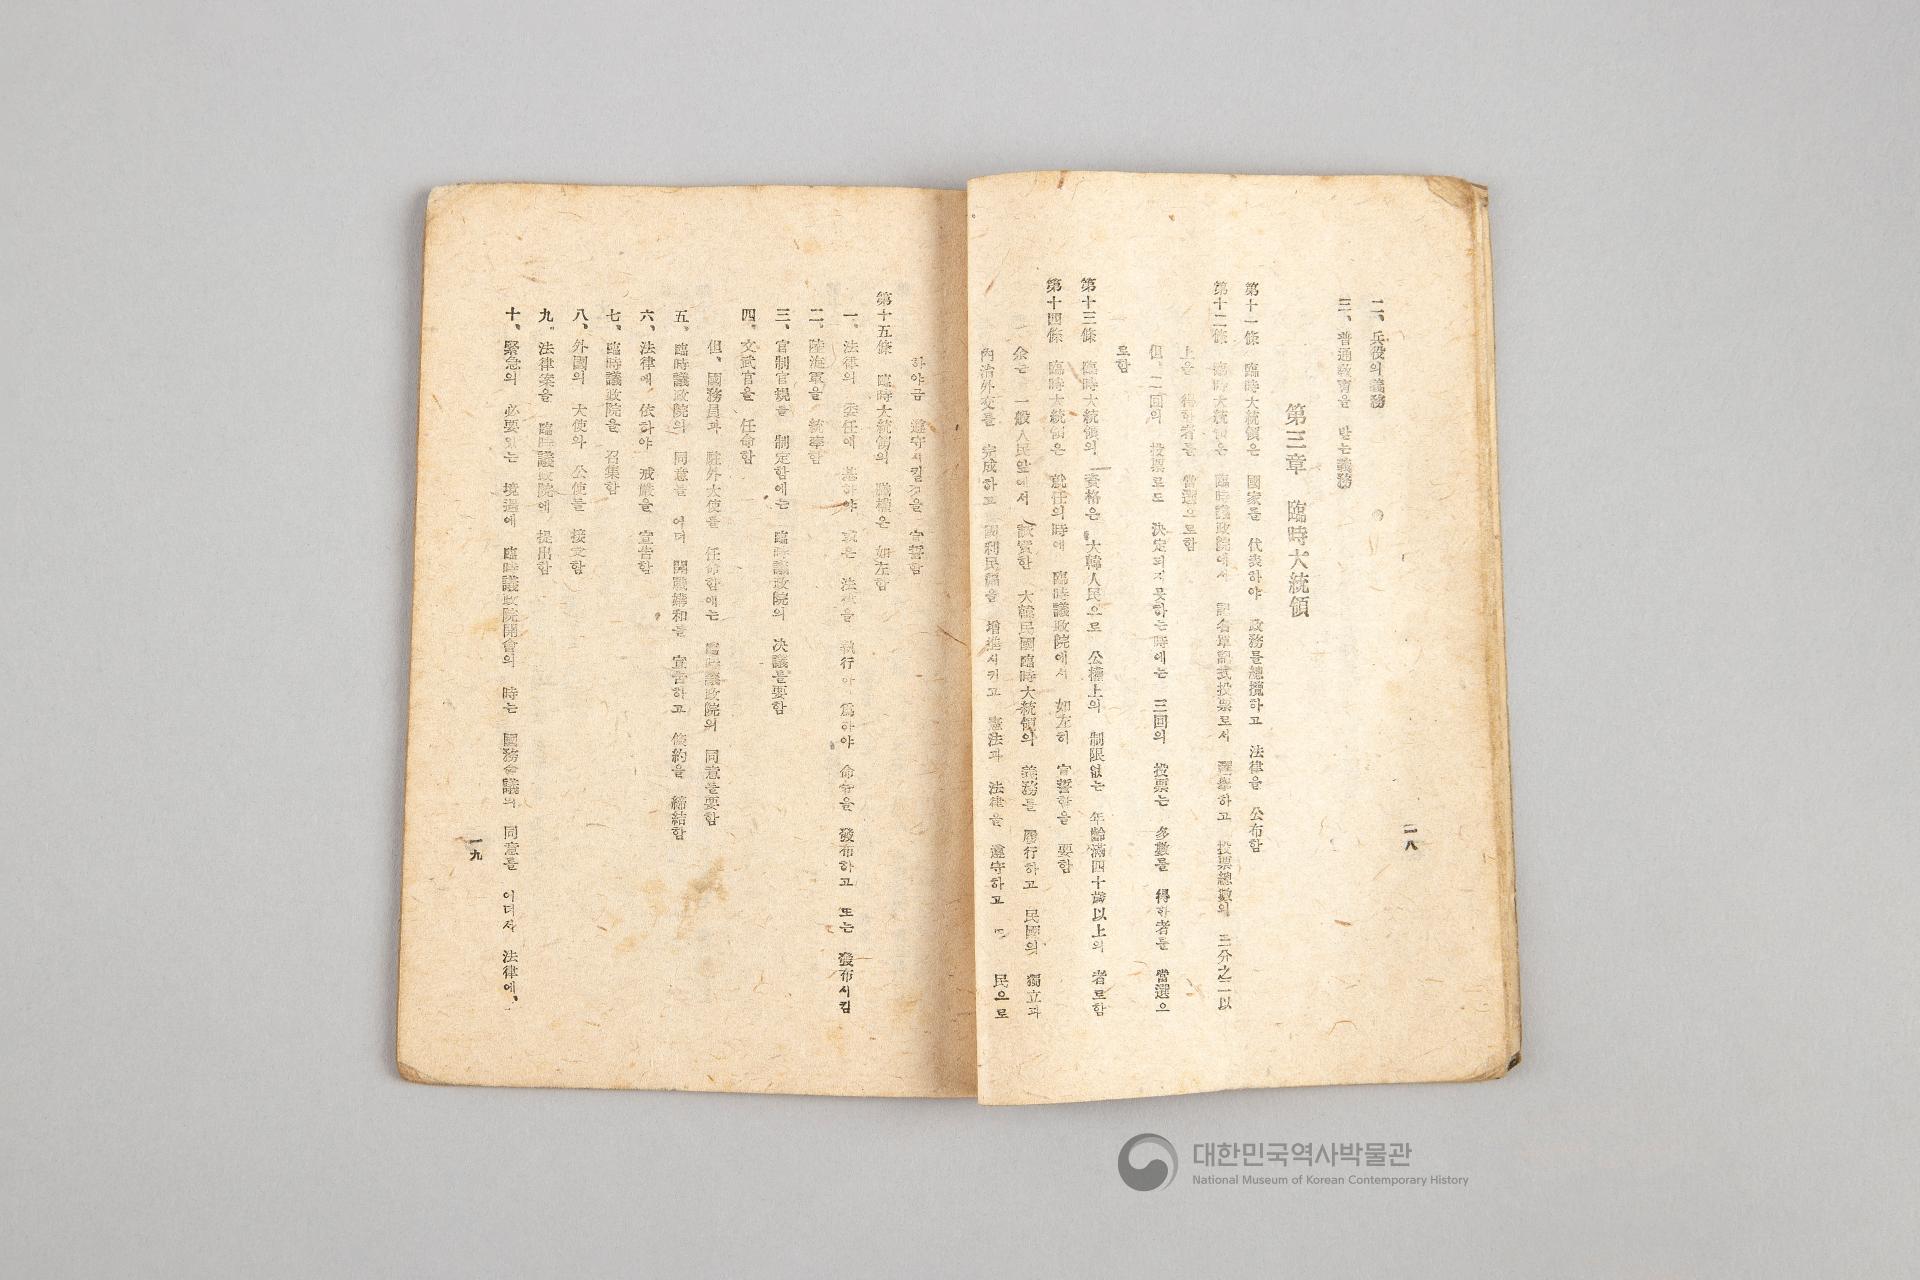 二、兵役의義務
三、普通敎育을 받는義務
第三章 臨時大統領
第十一條 臨時大統領은 國家를 代表하야 政務를總攬하고 法律을 公布함
第十二條 臨時大統領은 臨時議政院에서 記名單記式投票로서 選擧하고 投票總數의 三分之二以
上을 得한者를 當選으로함
但、二回의 投票로도 決定되지못하는時에는 三回의 投票는 多數를 得한者를 當選으
로함
第十三條 臨時大統領의 資格은 大韓人民으로 公權上의 制限없는 年齡滿四十歲以上의 者로함
第十四條 臨時大統領은 就任의時에 臨時議政院에서 如左히 宣誓함을 要함
余는 一般人民앞에서 誠實한 大韓民國臨時大統領의 義務를 履行하고 民國의 獨立과
內治外交를 完成하고 國利民福을 增進시키고 憲法과 法律을 遵守하고 民으로
一八
하야금 遵守시킬것을 宣誓함
第十五條 臨時大統領의 職權은 如左함
一、法律의 委任에 基하야 或은 法律을 執行하기 爲하야 命令을 發布하고 또는 發布시킴
二、陸海軍을 統率함
三、官制官規를 制定함에는 臨時議政院의 決議를要함
四、文武官을 任命함
但、國務員과 駐外大使를 任命함에는 臨時議政院의 同意를要함
五、臨時議政院의 同意를 어더 開戰媾和를 宣告하고 條約을 締結함
六、法律에 依하야 戒嚴을 宣告함
七、臨時議政院을 召集함
八、外國의 大使와 公使를 接受함
九、法律案을 臨時議政院에 提出함
十、緊急의 必要있는 境遇에 臨時議政院閉會의 時는 國務會議의 同意를 어더서 法律에、
一九
대한민국역사박물관
National Museum of Korean Contemporary History